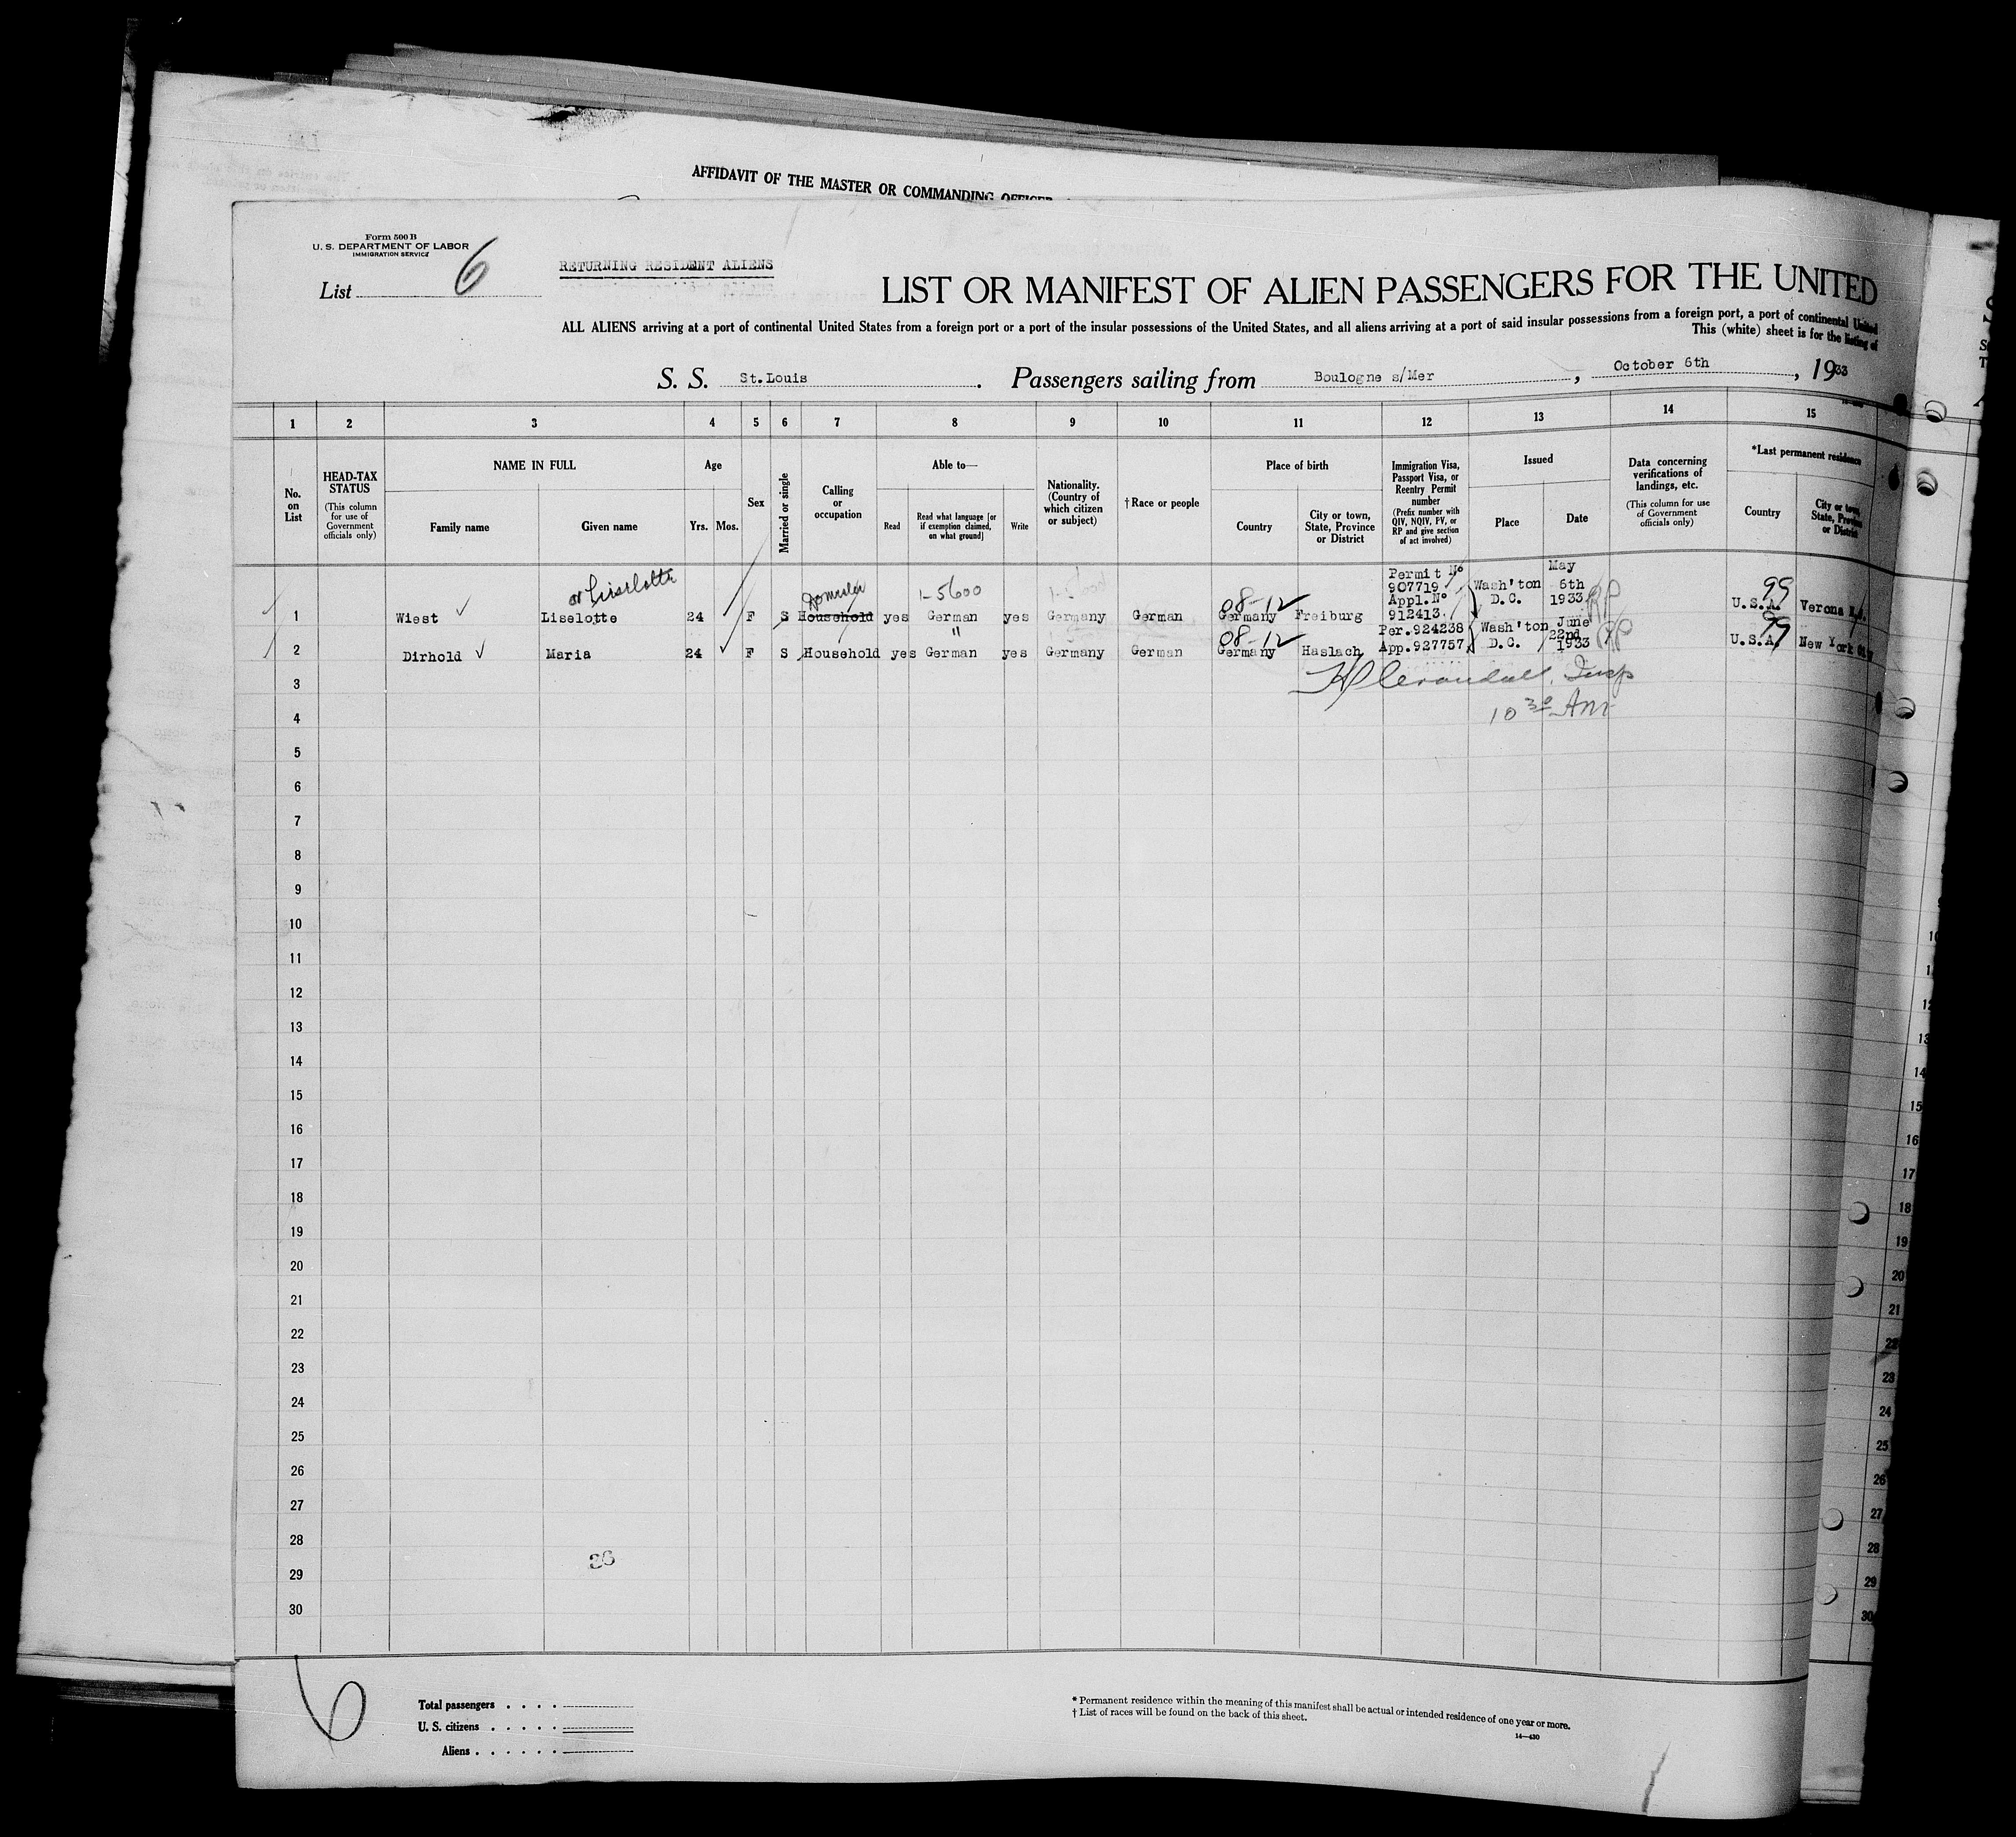 AFFIDAVIT OF THE MASTER OR COMMANDING OFFICER
Form 500 B
U. S. DEPARTMENT OF LABOR
IMMIGRATION SERVICE
List 6
RETURNING RESIDENT ALIENS
LIST OR MANIFEST OF ALIEN PASSENGERS FOR THE UNITED
ALL ALIENS arriving at a port of continental United States from a foreign port or a port of the insular possessions of the United States, and all aliens arriving at a port of said insular possessions from a foreign port, a port of continental United
This (white) sheet is for the listing of
S. S. St.Louis. Passengers sailing from Boulogne s/Mer, October 6th, 1933
1 2 3 4 5 6 7 8 9 10 11 12 13 14 15
No. on List
HEAD-TAX STATUS
(This column for use of Government officials only)
NAME IN FULL
Family name Given name
Age
Yrs. Mos.
Sex
Married or single
Calling or occupation
Able to—
Read
Read what language [or if exemption claimed, on what ground]
Write
Nationality. (Country of which citizen or subject)
†Race or people
Place of birth
Country
City or town, State, Province or District
Immigration Visa, Passport Visa, or Reentry Permit number
(Prefix number with QIV, NQIV, PV, or RP and give section of act involved)
Issued
Place Date
Data concerning verifications of landings, etc.
(This column for use of Government officials only)
*Last permanent residence
Country
City or town, State, Province or District
or Liselotte
1-5600
1-5600
08-12
Permit No
907719
Appl.No
912413
Wash'ton
D.C.
May
6th
1933
RP
99
1 Wiest Liselotte 24 F S Household yes German yes Germany German Germany Freiburg U.S.A. Verona
"
08-12
Per.924238
App.927757
Wash'ton
D.C.
June
22nd
1933
RP
99
2 Dirhold Maria 24 F S Household yes German yes Germany German Germany Haslach U.S.A. New York City
Insp
10 30 Am
3
4
5
6
7
8
9
10
11
12
13
14
15
16
17
18
19
20
21
22
23
24
25
26
27
28
29
30
36
6
Total passengers
U. S. citizens
Aliens
* Permanent residence within the meaning of this manifest shall be actual or intended residence of one year or more.
† List of races will be found on the back of this sheet.
14—430